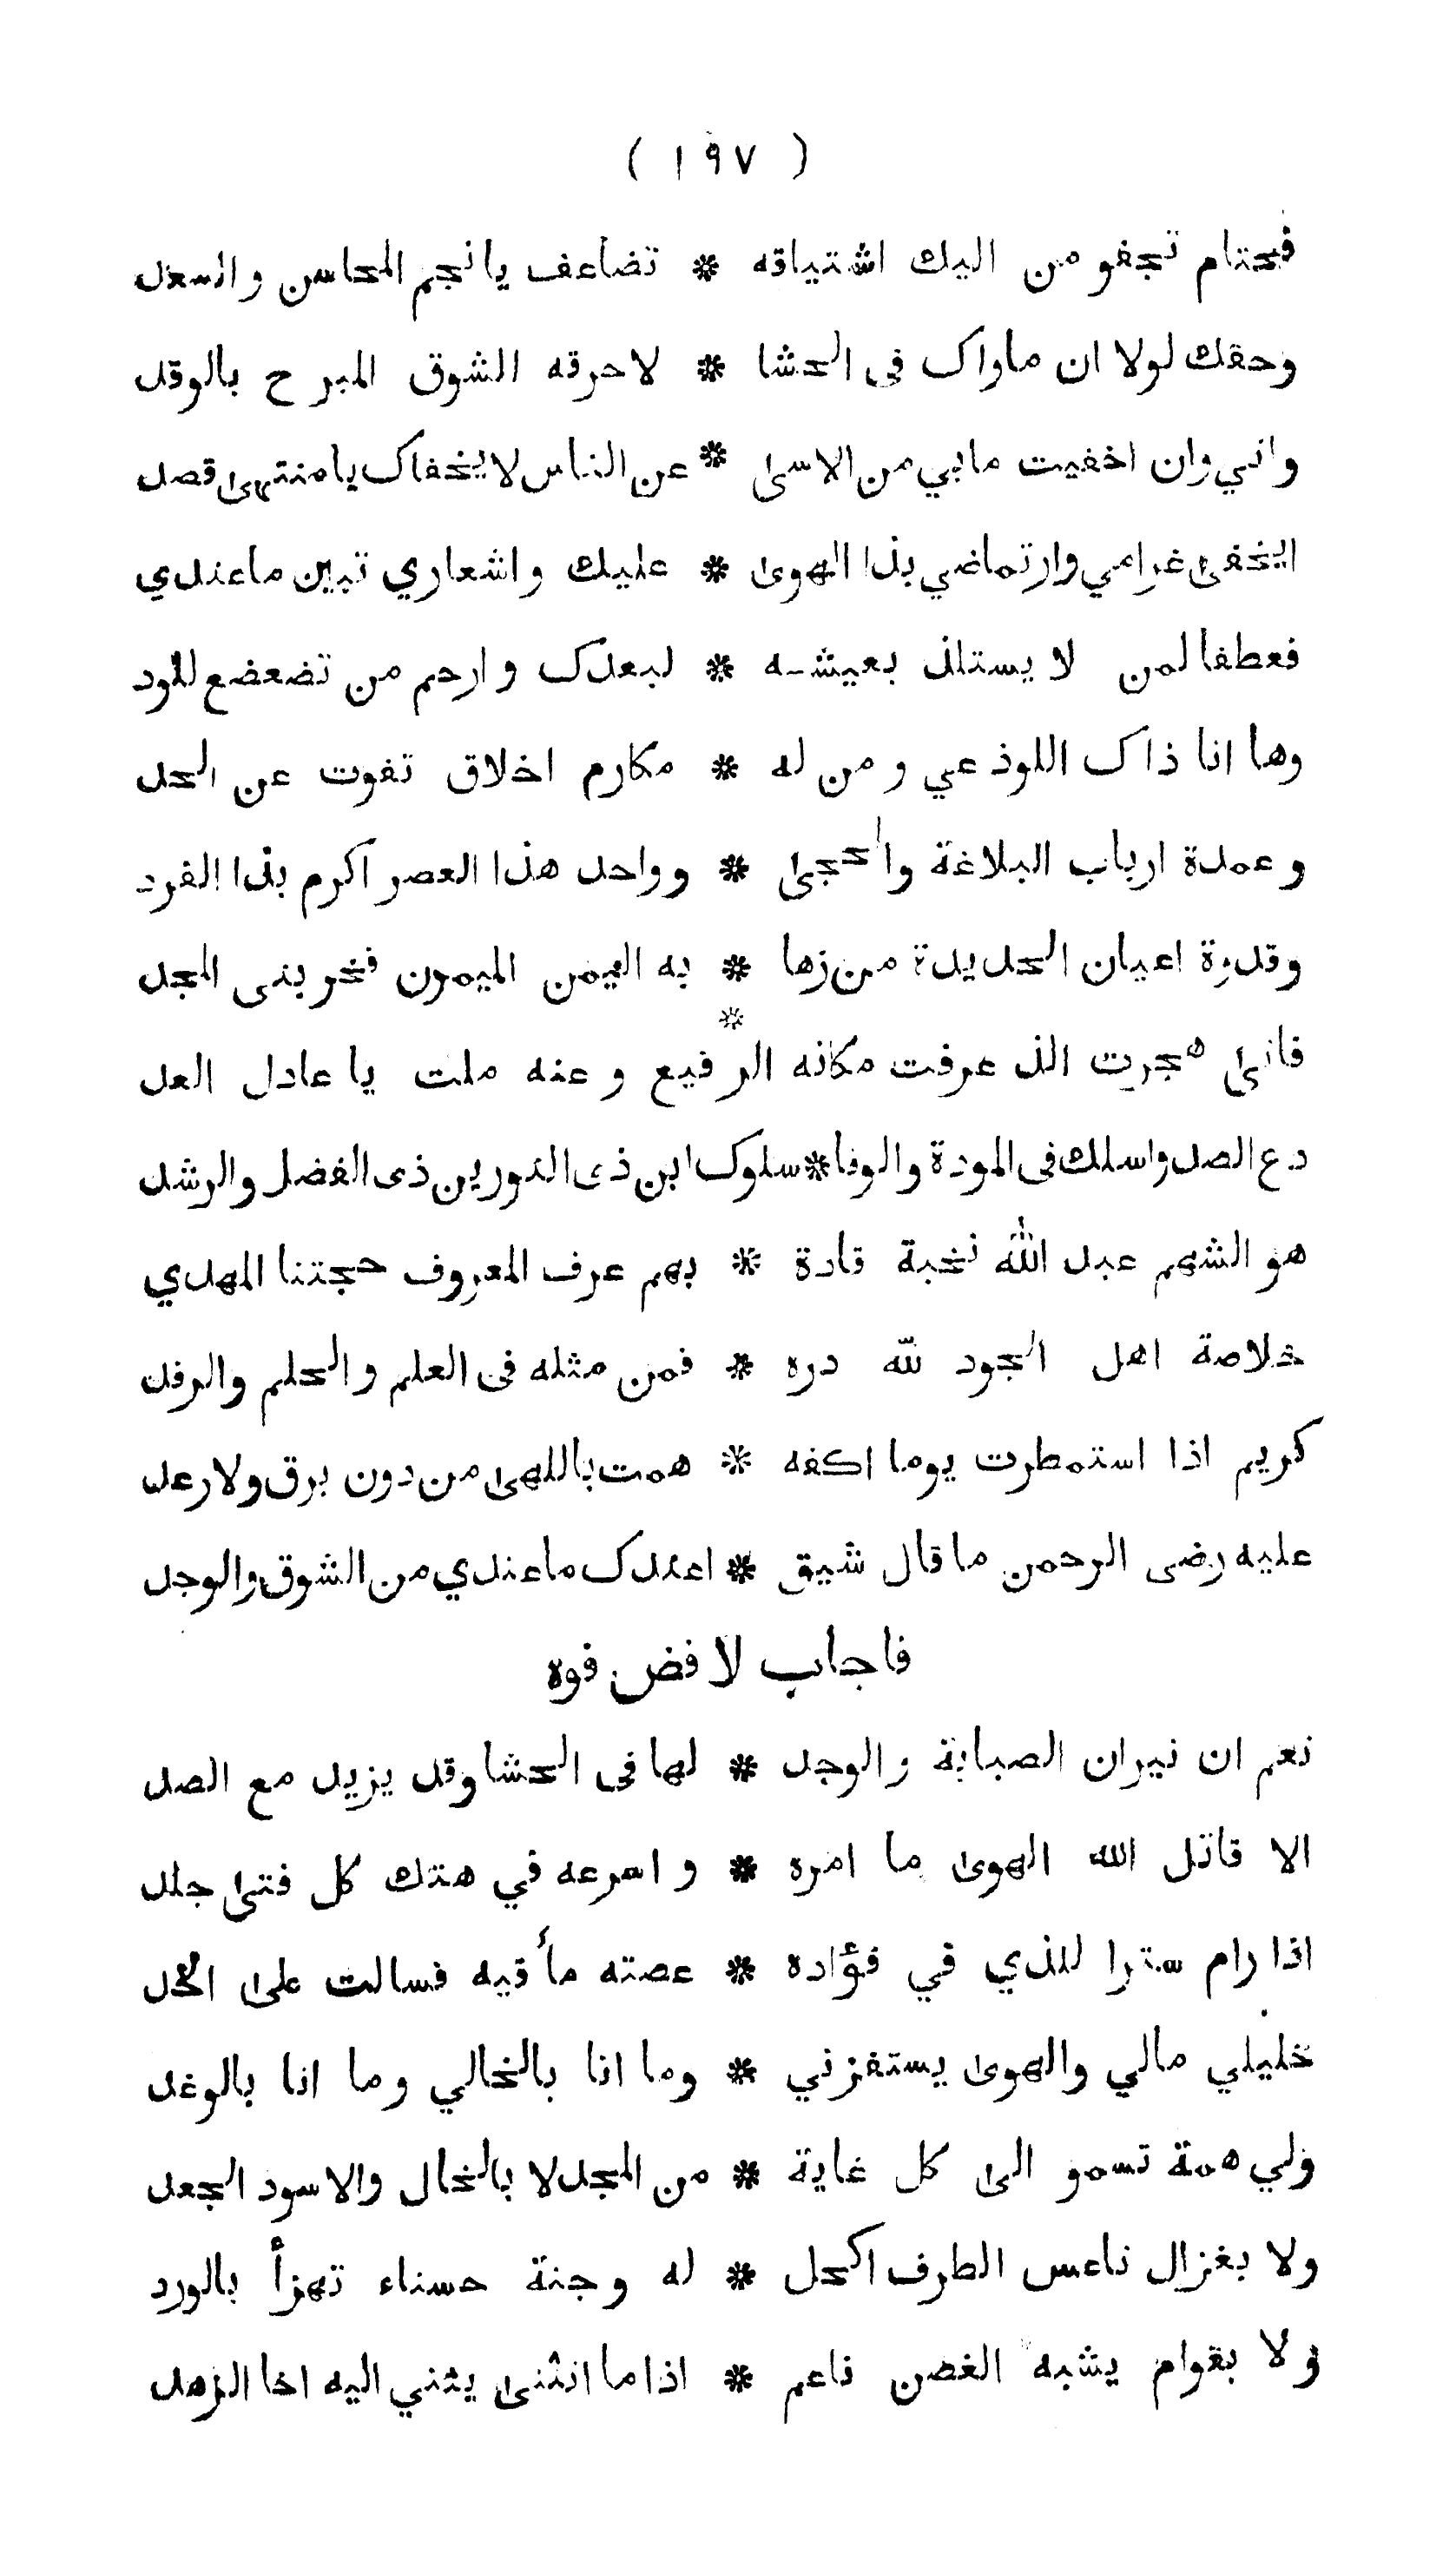 ( ١٩٧ )
فحتام تجفو من اليك اشتياقه * تضاعف يا نجم المحاسن والسعد
وحقك لولا ان ماواك فى الحشا * لاحرقه الشوق المبرح بالوقد
واني وان اخفيت مابي من الاسى * عن الناس لا يخفاك يا منتهى قصد
ايخفى غرامي وارتماضي بذا الهوى * عليك واشعاري تبين ماعندي
فعطفا لمن لا يستلذ بعيشه * لبعدك وارحم من تضعضع للود
وها انا ذاك اللوذعي ومن له * مكارم اخلاق تفوت عن الحد
وعمدة ارباب البلاغة والحجى * وواحد هذا العصر اكرم بذا الفرد
وقدوة اعيان الحديدة من زها * به اليمن الميمون فخر بنى المجد
فانى هجرت الذ عرفت مكانه الر * فيع وعنه ملت يا عادل العد
دع الصد واسلك فى المودة والوفا * سلوك ابن ذى النورين ذى الفضل والرشد
هو الشهم عبد الله نخبة قادة * بهم عرف المعروف حجتنا المهدي
خلاصة اهل الجود لله دره * فمن مثله فى العلم والحلم والرفد
كريم اذا استمطرت يوما اكفه * همت باللهى من دون برق ولا رعد
عليه رضى الرحمن ما قال شيق * اعندك ماعندي من الشوق والوجد
فاجاب لا فض فوه
نعم ان نيران الصبابة والوجد * لها فى الحشا وقد يزيد مع الصد
الا قاتل الله الهوى ما امره * واسرعه في هتك كل فتى جلد
اذا رام سترا للذي في فؤاده * عصته مأقيه فسالت على الخد
خليلي مالي والهوى يستفزني * وما انا بالخالي وما انا بالوغد
ولي همة تسمو الى كل غاية * من المجد لا بالخال والاسود الجعد
ولا بغزال ناعس الطرف اكحل * له وجنة حسناء تهزأ بالورد
ولا بقوام يشبه الغصن ناعم * اذا ما انثنى يثني اليه اخا الزهد